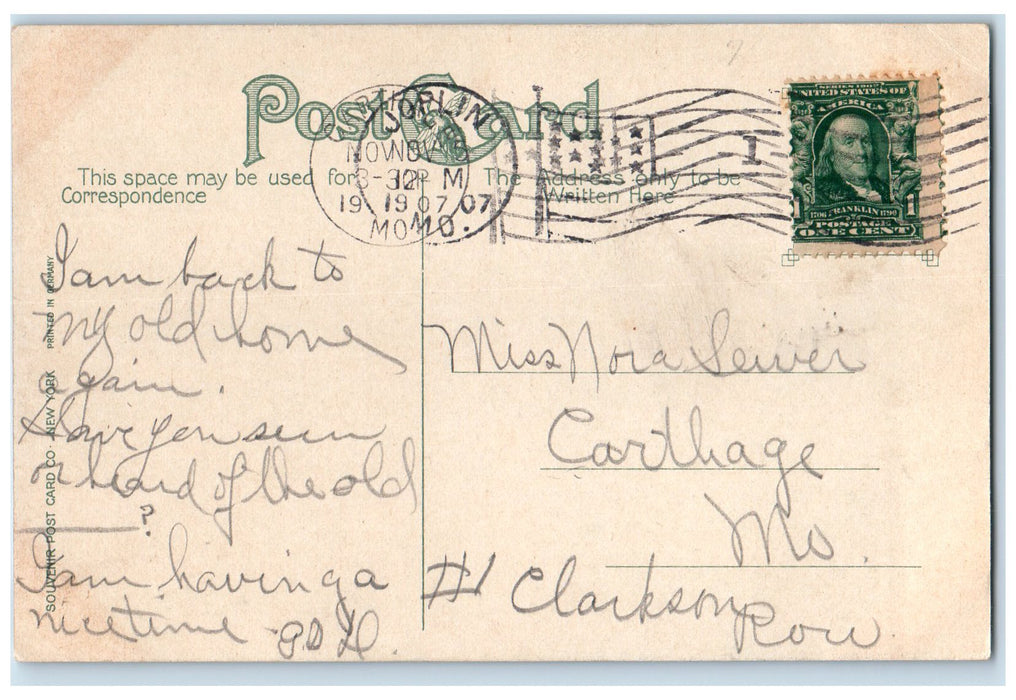 Post Card
This space may be used for
Correspondence
The Address only to be
Written Here
JOPLIN
NOV
M
19 07
MO.
1
SERIES 1902
UNITED STATES OF
AMERICA
1 1
1706 FRANKLIN 1790
POSTAGE
ONE CENT
I am back to
my old home
again.
Have you seen
or heard of the old
____?
I am having a
nice time
Miss Nora Sewer
Carthage
Mo.
#1 Clarkson
Row
SOUVENIR POST CARD CO. NEW YORK PRINTED IN GERMANY